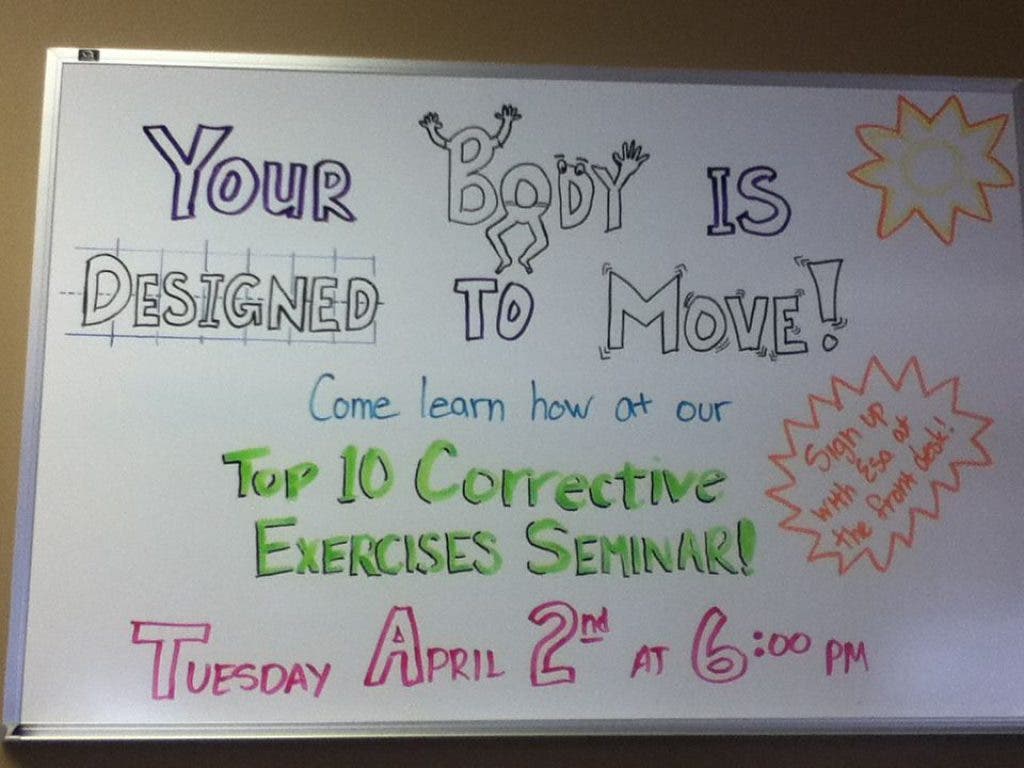 YOUR BODY IS
DESIGNED TO MOVE!
Come learn how at our
Top 10 Corrective
EXERCISES SEMINAR!
TUESDAY APRIL 2nd AT 6:00 PM
Sign up
with Esa at
the front desk!